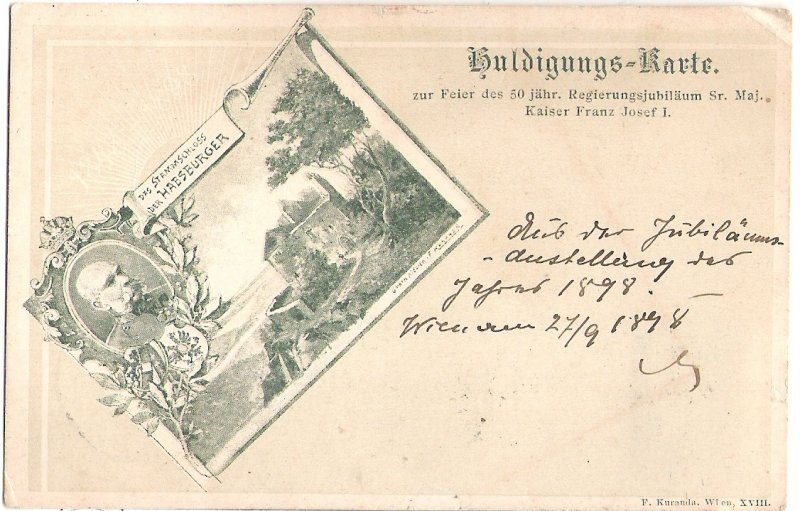 Huldigungs-Karte.
zur Feier des 50 jähr. Regierungsjubiläum Sr. Maj.
Kaiser Franz Josef I.
DAS STAMMSCHLOSS
DER HABSBURGER
Aus der Jubiläums-
-Austellung des
Jahres 1898. –
Wien am 27/9 1898
F. Kuranda. Wien, XVIII.